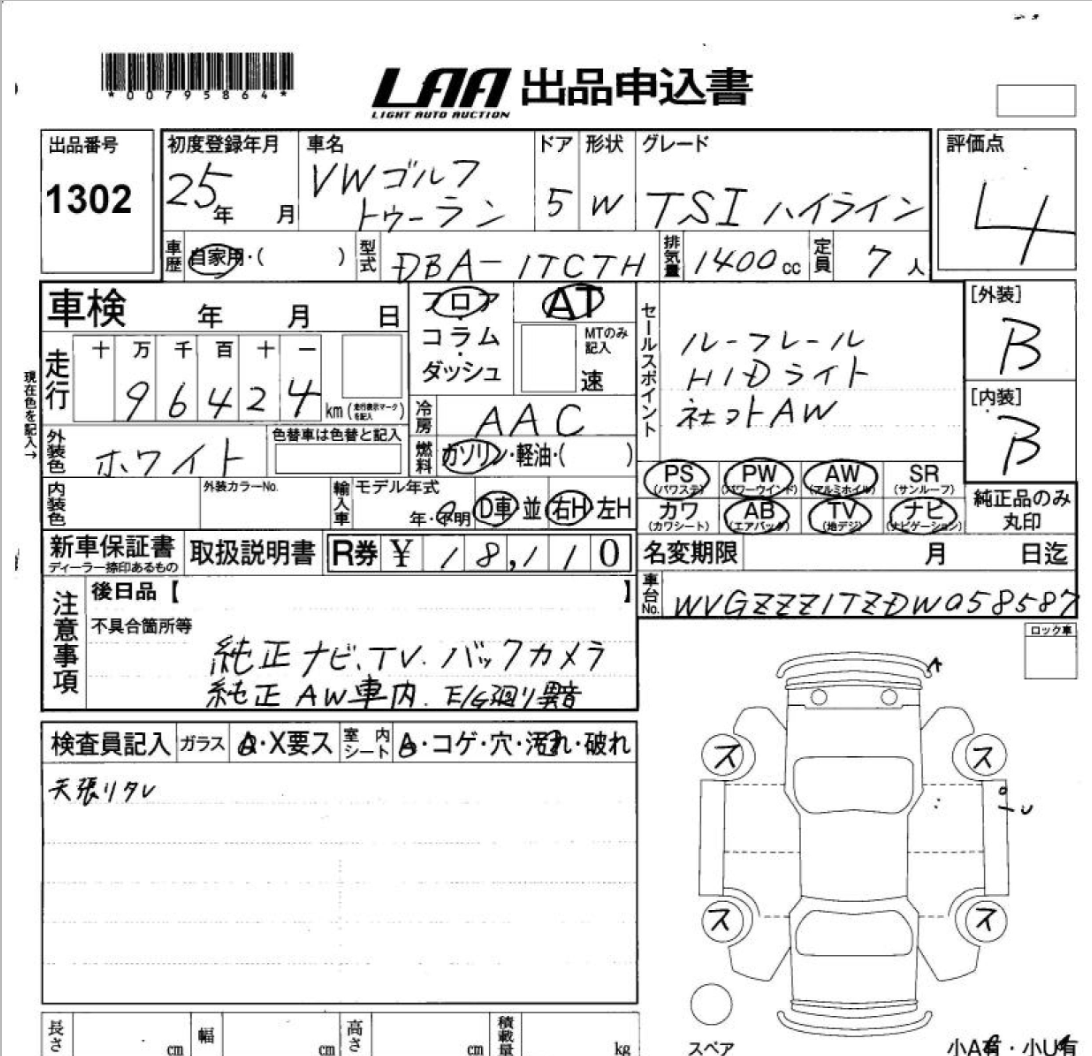 *00795864*
LAA 出品申込書
LIGHT AUTO AUCTION
出品番号
1302
初度登録年月
25年 月
車名
VWゴルフ
トゥーラン
ドア
5
形状
W
グレード
TSI ハイライン
評価点
4
車歴
自家用・( )
型式
DBA-1TCTH
排気量
1400cc
定員
7人
車検 年 月 日
フロア
・
コラム
・
ダッシュ
AT
MTのみ記入
速
セールスポイント
ルーフレール
HIDライト
社外AW
[外装]
B
[内装]
B
現在色を記入→
走行
十 万 千 百 十 一
9 6 4 2 4
km(走行表示マークを記入)
冷房
AAC
燃料
ガソリン・軽油・( )
外装色
ホワイト
色替車は色替と記入
内装色
外装カラーNo.
輸入車
モデル年式
年・不明
D車 並
右H 左H
PS
(パワステ)
PW
(パワーウインド)
AW
(アルミホイル)
SR
(サンルーフ)
カワ
(カワシート)
AB
(エアバック)
TV
(地デジ)
ナビ
(ナビゲーション)
純正品のみ
丸印
新車保証書
ディーラー捺印あるもの
取扱説明書
R券 ¥ 18,110
名変期限 月 日迄
車台No.
WVGZZZ1TZDW058587
注意事項
後日品【 】
不具合箇所等
純正ナビ、TV.バックカメラ
純正AW車内.E/G廻り異音
ロック車
検査員記入
ガラス
A・X要ス
室内シート
A・コゲ・穴・汚れ・破れ
天張りタレ
A
ス
ス
U
ス
ス
スペア
長さ cm
幅 cm
高さ cm
積載量 kg
小A有・小U有